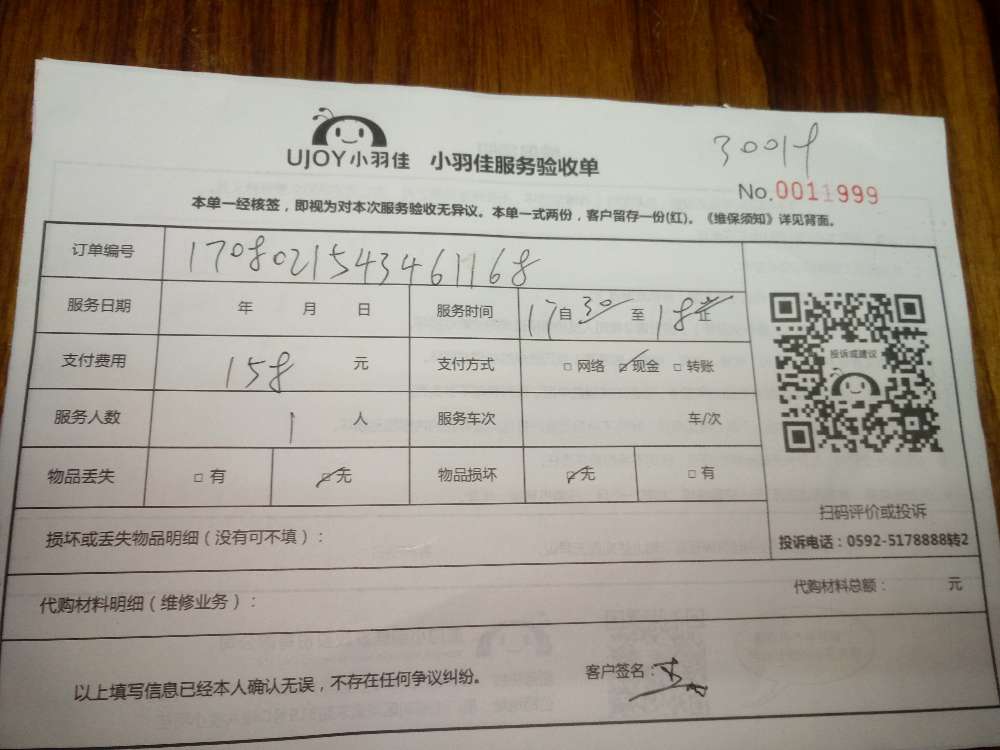 30019
UJOY小羽佳 小羽佳服务验收单
No.0011999
本单一经核签，即视为对本次服务验收无异议。本单一式两份，客户留存一份(红)。《维保须知》详见背面。
订单编号 1708021543461168
服务日期 年 月 日 服务时间 17自30 至 18止
支付费用 158 元 支付方式 □ 网络 ☑ 现金 □ 转账
投诉或建议
服务人数 1 人 服务车次 车/次
物品丢失 □ 有 ☑ 无 物品损坏 ☑ 无 □ 有
扫码评价或投诉
损坏或丢失物品明细（没有可不填）：
投诉电话：0592-5178888转2
代购材料明细（维修业务）：
代购材料总额： 元
以上填写信息已经本人确认无误，不存在任何争议纠纷。 客户签名：